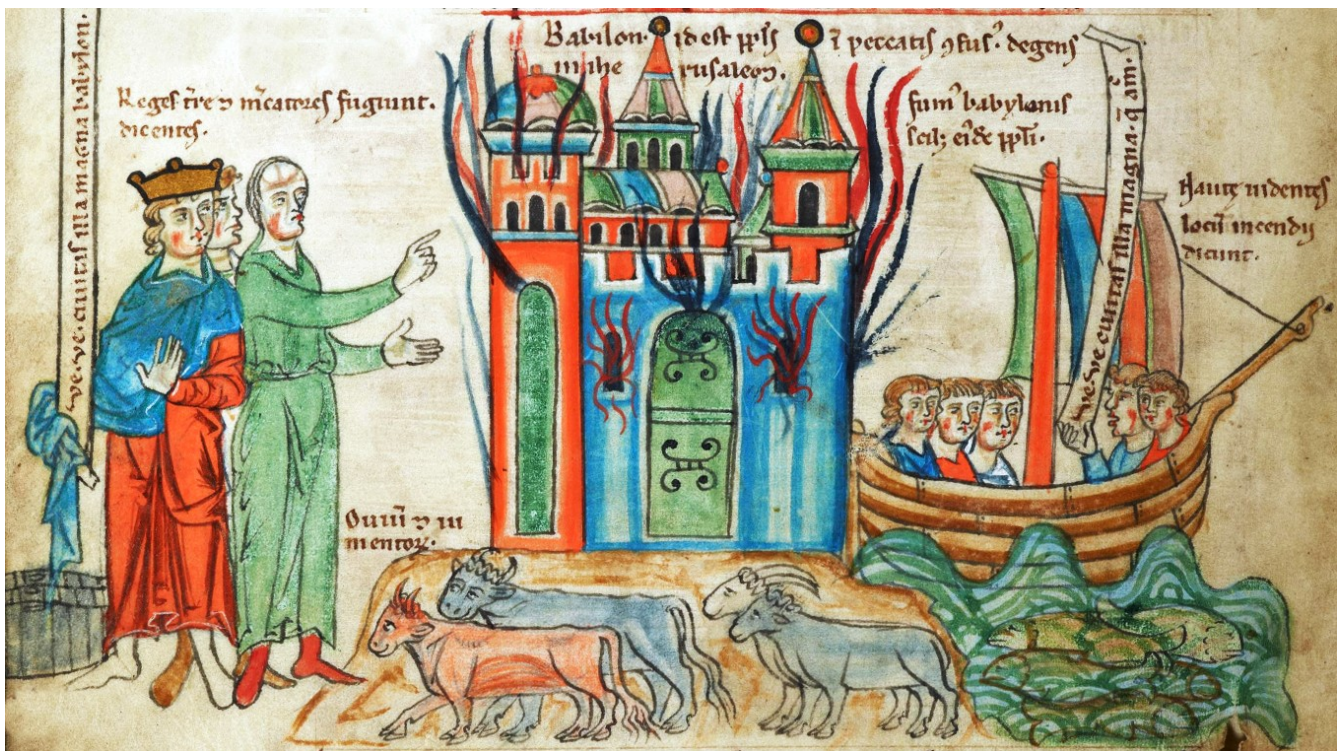 ve. ve. civitas illa magna babylon.
Reges t̄re ⁊ m̄catores fugiunt.
dicentes.
Babilon. id est ppl̄s
in ihe rusalem.
ī peccatis ꝯfusꝰ. degens
fumꝰ babylonis
scil; eiꝰde ppl̄i.
Ouiū ⁊ iu
mentoꝝ.
ve. ve civitas illa magna. q̄ am̄.
Naute uidentes
locū incendii
dicunt.